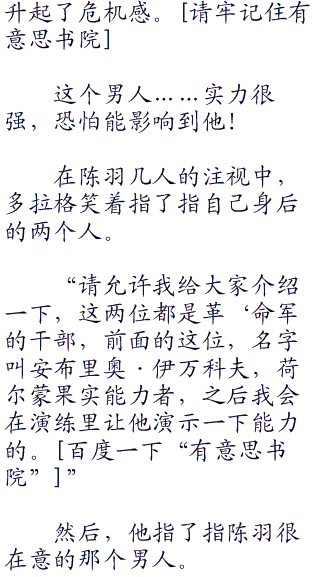 升起了危机感。[请牢记住有
意思书院]
这个男人……实力很
强，恐怕能影响到他！
在陈羽几人的注视中，
多拉格笑着指了指自己身后
的两个人。
“请允许我给大家介绍
一下，这两位都是革‘命军
的干部，前面的这位，名字
叫安布里奥·伊万科夫，荷
尔蒙果实能力者，之后我会
在演练里让他演示一下能力
的。[百度一下“有意思书
院”]”
然后，他指了指陈羽很
在意的那个男人。